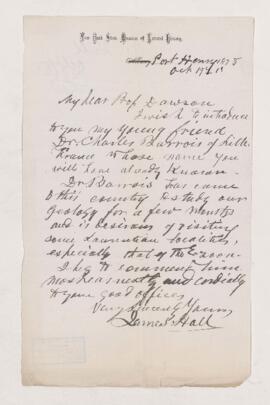 New York State Museum of Natural History,
Port Henry 1878
Oct 15
My dear Prof Dawson
I wish to introduce
to you my young friend
Dr. Charles Barrois of Lille
France whose name you
will have already known.
Dr Barrois has come
to this country to study our
geology for a few months
and is desirous of visiting
some Laurentian localities,
especially that of the Eozoon.
I beg to commend him
most earnestly and cordially
to your good offices
Very sincerely Yours
James Hall